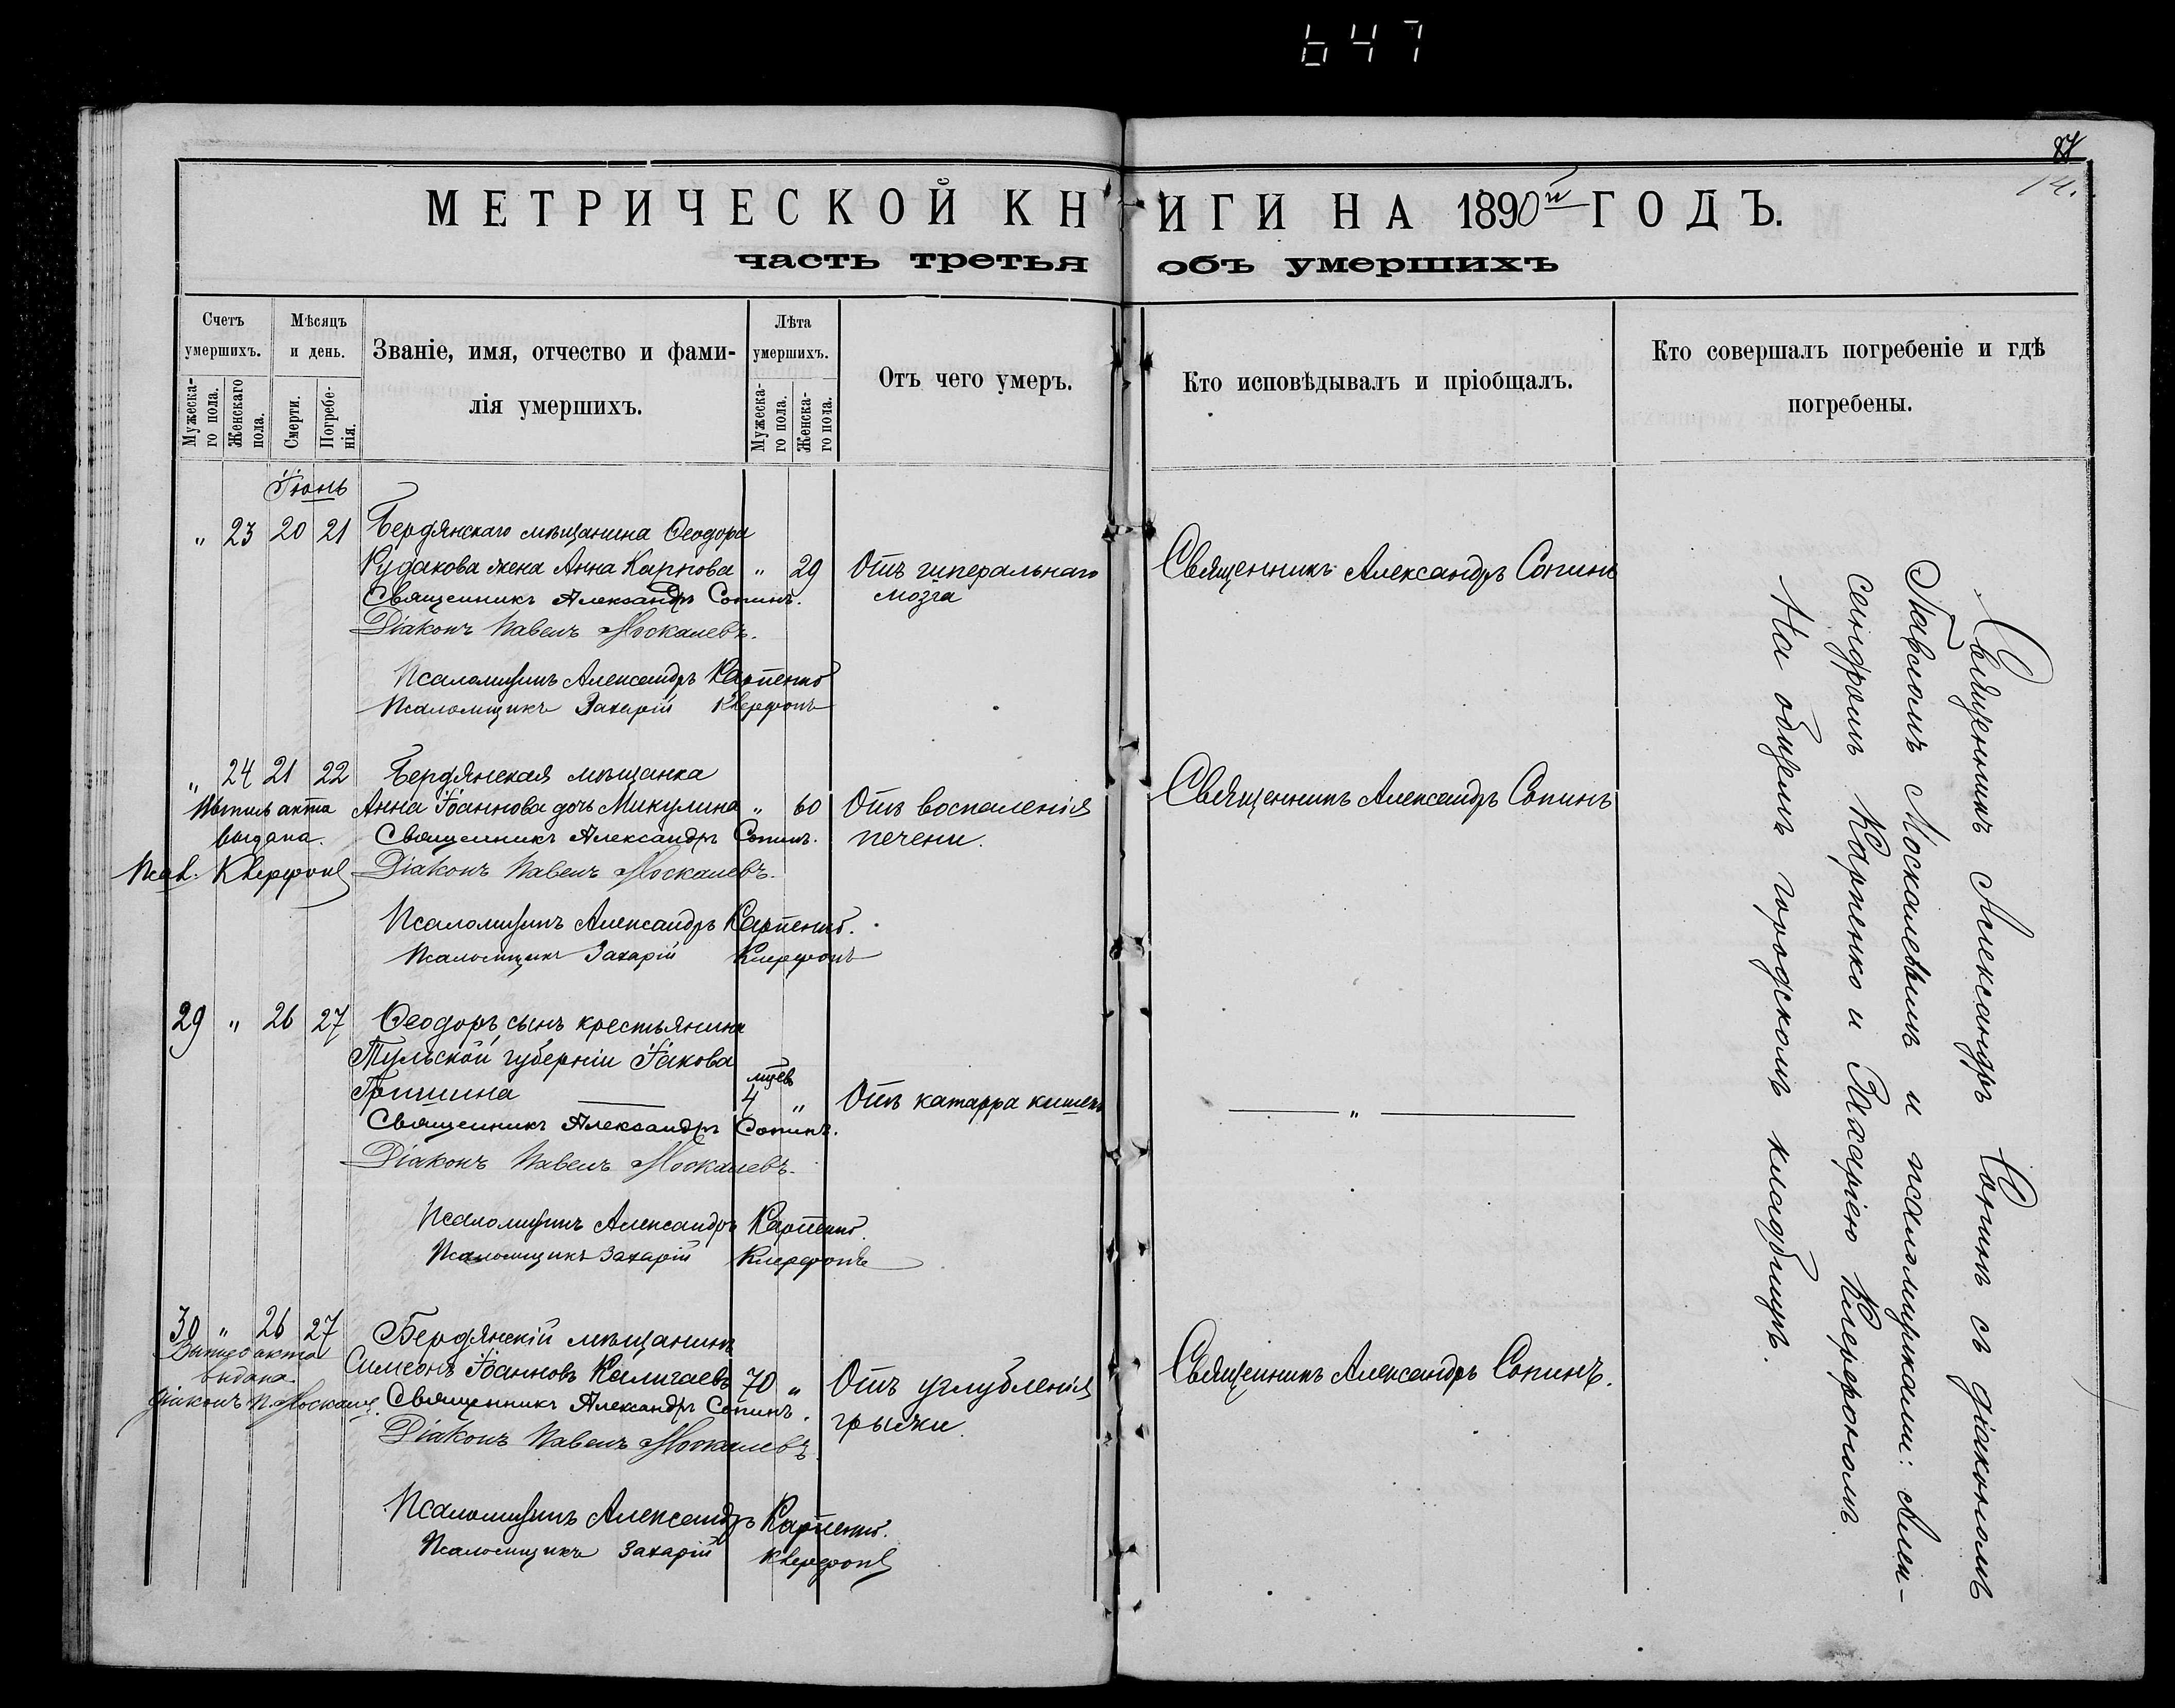 647
МЕТРИЧЕСКОЙ КНИГИ НА 1890й ГОДЪ.
часть третья объ умершихъ
Счетъ умершихъ.
Мужеска-
го пола.
Женскаго
пола.
Мѣсяцъ
и день.
Смерти.
Погребе-
нія.
Званіе, имя, отчество и фами-
лія умершихъ.
Лѣта
умершихъ.
Мужеска-
го пола.
Женска-
го пола.
Отъ чего умеръ.
Кто исповѣдывалъ и пріобщалъ.
Кто совершалъ погребеніе и гдѣ
погребены.
Іюнь
" 23 20 21 Бердянскаго мѣщанина Ѳеодора
Кудакова жена Анна Карпова " 29 Отъ мозга Священникъ Александръ Сопинъ
Священникъ Александръ Сопинъ.
Діаконъ Павелъ Москалевъ.
Псаломщикъ Александръ Карпенко
Псаломщикъ Захарій Клерфонъ
" 24 21 22 Бердянская мѣщанка
Анна Іоаннова дочь Микулина " 60 Отъ воспаленія печени. Священникъ Александръ Сопинъ
акта выдана.
Псал. Клерфонъ
Священникъ Александръ Сопинъ.
Діаконъ Павелъ Москалевъ.
Псаломщикъ Александръ Карпенко.
Псаломщикъ Захарій Клерфонъ
29 " 26 27 Ѳеодоръ, сынъ крестьянина
Тульской губерніи Іакова
Гришина 4 " Отъ катарра кишекъ "
Священникъ Александръ Сопинъ.
Діаконъ Павелъ Москалевъ.
Псаломщикъ Александръ Карпенко.
Псаломщикъ Захарій Клерфонъ
30 " 26 27 Бердянскій мѣщанинъ
Симеонъ Іоанновъ Калигаевъ 70 " Отъ углубленія грыжи. Священникъ Александръ Сопинъ.
акта выдана.
Діаконъ П. Москалев.
Священникъ Александръ Сопинъ.
Діаконъ Павелъ Москалевъ.
Псаломщикъ Александръ Карпенко.
Псаломщикъ Захарій Клерфонъ
Священникъ Александръ Сопинъ съ діакономъ
Павломъ Москалевымъ и псаломщиками: Алек-
сандромъ Карпенко и Захаріею Клерфономъ
На общемъ городскомъ кладбищѣ.